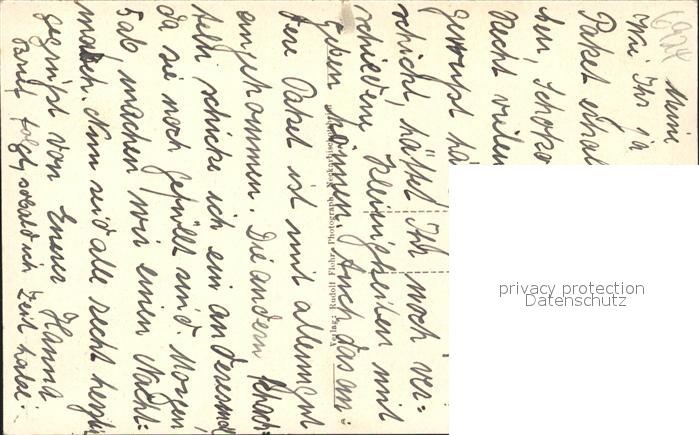 Meine
Wie Ihr ja
Paket erhal
ben, Schoko
Recht vielen
gewußt ha
schickt, hättet Ihr noch ver=
schiedene Kleinigkeiten mit
geben können. Auch das an=
dere Paket ist mit allem gut
angekommen. Die andern Schach=
teln schicke ich ein anderesmal
da sie noch gefüllt sind. Morgen
Sab machen wir einen Nacht=
marsch. Nun seid alle recht herzlich
gegrüßt von Eurer Hanna
Brief folgt, sobald ich Zeit habe.
Verlag: Rudolf Flohr, Photograph, Neckarbischofsheim
privacy protection
Datenschutz